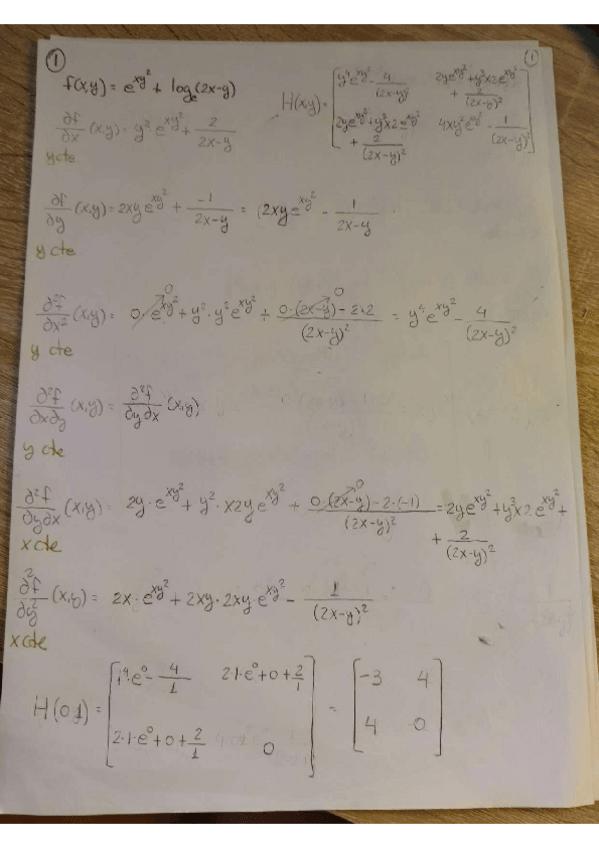 ①
①
f(x,y) = e^{xy²} + log_e(2x-y)
H(x,y) = [ y⁴e^{xy²} - 4/(2x-y)²   2ye^{xy²} + y³x2e^{xy²} + 2/(2x-y)²
2ye^{xy²} + y³x2e^{xy²} + 2/(2x-y)²   4xy²e^{xy²} - 1/(2x-y)² ]
∂f/∂x (x,y) = y² e^{xy²} + 2/(2x-y)
y cte
∂f/∂y (x,y) = 2xy e^{xy²} + -1/(2x-y) = 2xye^{xy²} - 1/(2x-y)
y cte
∂²f/∂x² (x,y) = 0·e^{xy²} + y²·y² e^{xy²} + (0·(2x-y) - 2·2)/(2x-y)² = y⁴e^{xy²} - 4/(2x-y)²
0 0
y cte
∂²f/∂x∂y (x,y) = ∂²f/∂y∂x (x,y)
y cte
∂²f/∂y∂x (x,y) = 2y·e^{xy²} + y²·x2ye^{xy²} + (0·(2x-y) - 2·(-1))/(2x-y)² = 2ye^{xy²} + y³x2e^{xy²} +
0
x cte
+ 2/(2x-y)²
∂²f/∂y² (x,y) = 2x·e^{xy²} + 2xy·2xy·e^{xy²} - 1/(2x-y)²
x cte
H(0,1) = [ 1⁴·e⁰ - 4/1   2·1·e⁰ + 0 + 2/1
2·1·e⁰ + 0 + 2/1   0 ] = [ -3 4
4 0 ]